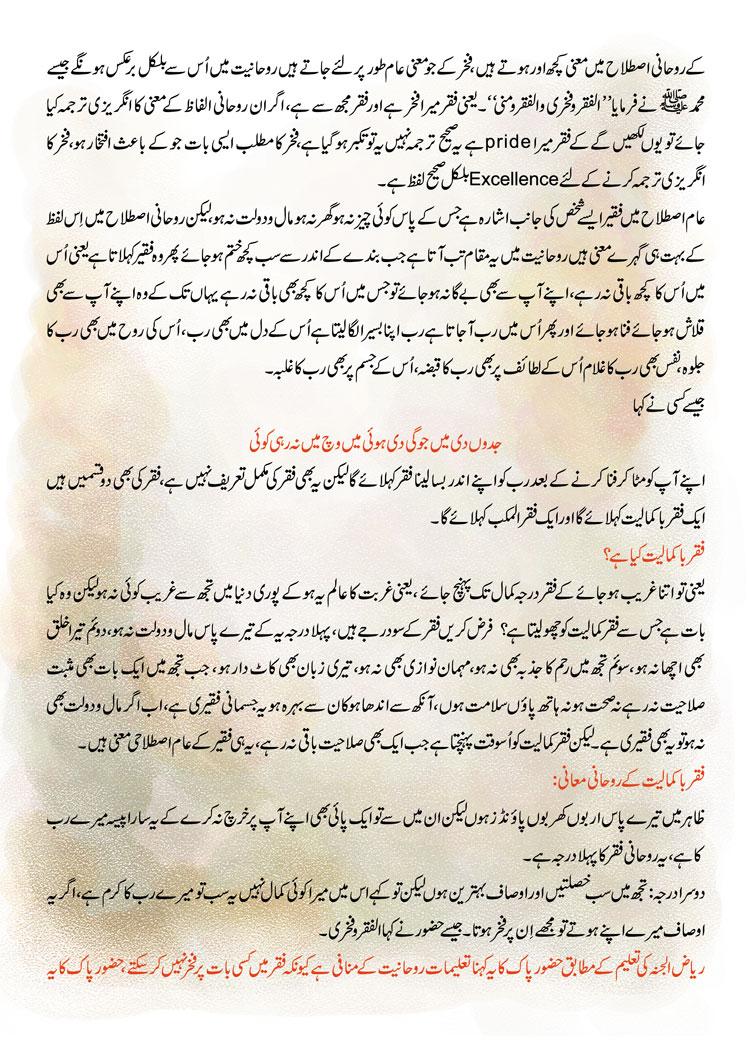 کے روحانی اصطلاح میں معنی کچھ اور ہوتے ہیں، فخر کے جو معنی عام طور پر لئے جاتے ہیں روحانیت میں اُس سے بلکل برعکس ہونگے جیسے
محمد ﷺ نے فرمایا ’’الفقر و فخری والفقر ومنی‘‘۔ یعنی فقر میرا فخر ہے اور فقر مجھ سے ہے، اگر ان روحانی الفاظ کے معنی کا انگریزی ترجمہ کیا
جائے تو یوں لکھیں گے کے فقر میرا pride ہے یہ صحیح ترجمہ نہیں یہ تو تکبر ہو گیا ہے، فخر کا مطلب ایسی بات جو کے باعث افتخار ہو، فخر کا
انگریزی ترجمہ کرنے کے لئے Excellence بلکل صحیح لفظ ہے۔
عام اصطلاح میں فقیر ایسے شخص کی جانب اشارہ ہے جس کے پاس کوئی چیز نہ ہو گھر نہ ہو مال و دولت نہ ہو، لیکن روحانی اصطلاح میں اِس لفظ
کے بہت ہی گہرے معنی ہیں روحانیت میں یہ مقام تب آتا ہے جب بندے کے اندر سے سب کچھ ختم ہو جائے پھر وہ فقیر کہلاتا ہے یعنی اُس
میں اُس کا کچھ باقی نہ رہے، اپنے آپ سے بھی بے گانہ ہو جائے تو جس میں اُس کا کچھ بھی باقی نہ رہے یہاں تک کے وہ اپنے آپ سے بھی
قلاش ہو جائے فنا ہو جائے اور پھر اُس میں رب آ جاتا ہے رب اپنا بسیرا لگا لیتا ہے اُس کے دل میں بھی رب، اُس کی روح میں بھی رب کا
جلوہ، نفس بھی رب کا غلام اُس کے لطائف پر بھی رب کا قبضہ، اُس کے جسم پر بھی رب کا غلبہ۔
جیسے کسی نے کہا
جدوں دی میں جوگی دی ہوئی میں وچ میں نہ رہی کوئی
اپنے آپ کو مٹا کر فنا کرنے کے بعد رب کو اپنے اندر بسا لینا فقر کہلائے گا لیکن یہ بھی فقر کی مکمل تعریف نہیں ہے، فقر کی بھی دو قسمیں ہیں
ایک فقر با کمالیت کہلائے گا اور ایک فقر المکب کہلائے گا۔
فقر با کمالیت کیا ہے؟
یعنی تو اتنا غریب ہو جائے کے فقر درجہ کمال تک پہنچ جائے، یعنی غربت کا عالم یہ ہو کے پوری دنیا میں تجھ سے غریب کوئی نہ ہو لیکن وہ کیا
بات ہے جس سے فقر کمالیت کو چھو لیتا ہے؟ فرض کریں فقر کے سو درجے ہیں، پہلا درجہ یہ کے تیرے پاس مال و دولت نہ ہو، دوئم تیرا خلق
بھی اچھا نہ ہو، سوئم تجھ میں رحم کا جذبہ بھی نہ ہو، مہمان نوازی بھی نہ ہو، تیری زبان بھی کاٹ دار ہو، جب تجھ میں ایک بات بھی مثبت
صلاحیت نہ رہے نہ صحت ہو نہ ہاتھ پاؤں سلامت ہوں، آنکھ سے اندھا ہو کان سے بہرہ ہو یہ جسمانی فقیری ہے، اب اگر مال و دولت بھی
نہ ہو تو یہ بھی فقیری ہے۔ لیکن فقر کمالیت کو اُسوقت پہنچتا ہے جب ایک بھی صلاحیت باقی نہ رہے، یہ ہی فقیر کے عام اصطلاحی معنی ہیں۔
فقر با کمالیت کے روحانی معانی:
ظاہر میں تیرے پاس اربوں کھربوں پاؤنڈز ہوں لیکن ان میں سے تو ایک پائی بھی اپنے آپ پر خرچ نہ کرے کے یہ سارا پیسہ میرے رب
کا ہے، یہ روحانی فقر کا پہلا درجہ ہے۔
دوسرا درجہ: تجھ میں سب خصلتیں اور اوصاف بہترین ہوں لیکن تو کہے اس میں میرا کوئی کمال نہیں یہ سب تو میرے رب کا کرم ہے، اگر یہ
اوصاف میرے اپنے ہوتے تو مجھے اِن پر فخر ہوتا۔ جیسے حضور نے کہا الفقر و فخری۔
ریاض الجنہ کی تعلیم کے مطابق حضور پاک کا یہ کہنا تعلیمات روحانیت کے منافی ہے کیونکہ فقر میں کسی بات پر فخر نہیں کر سکتے، حضور پاک کا یہ